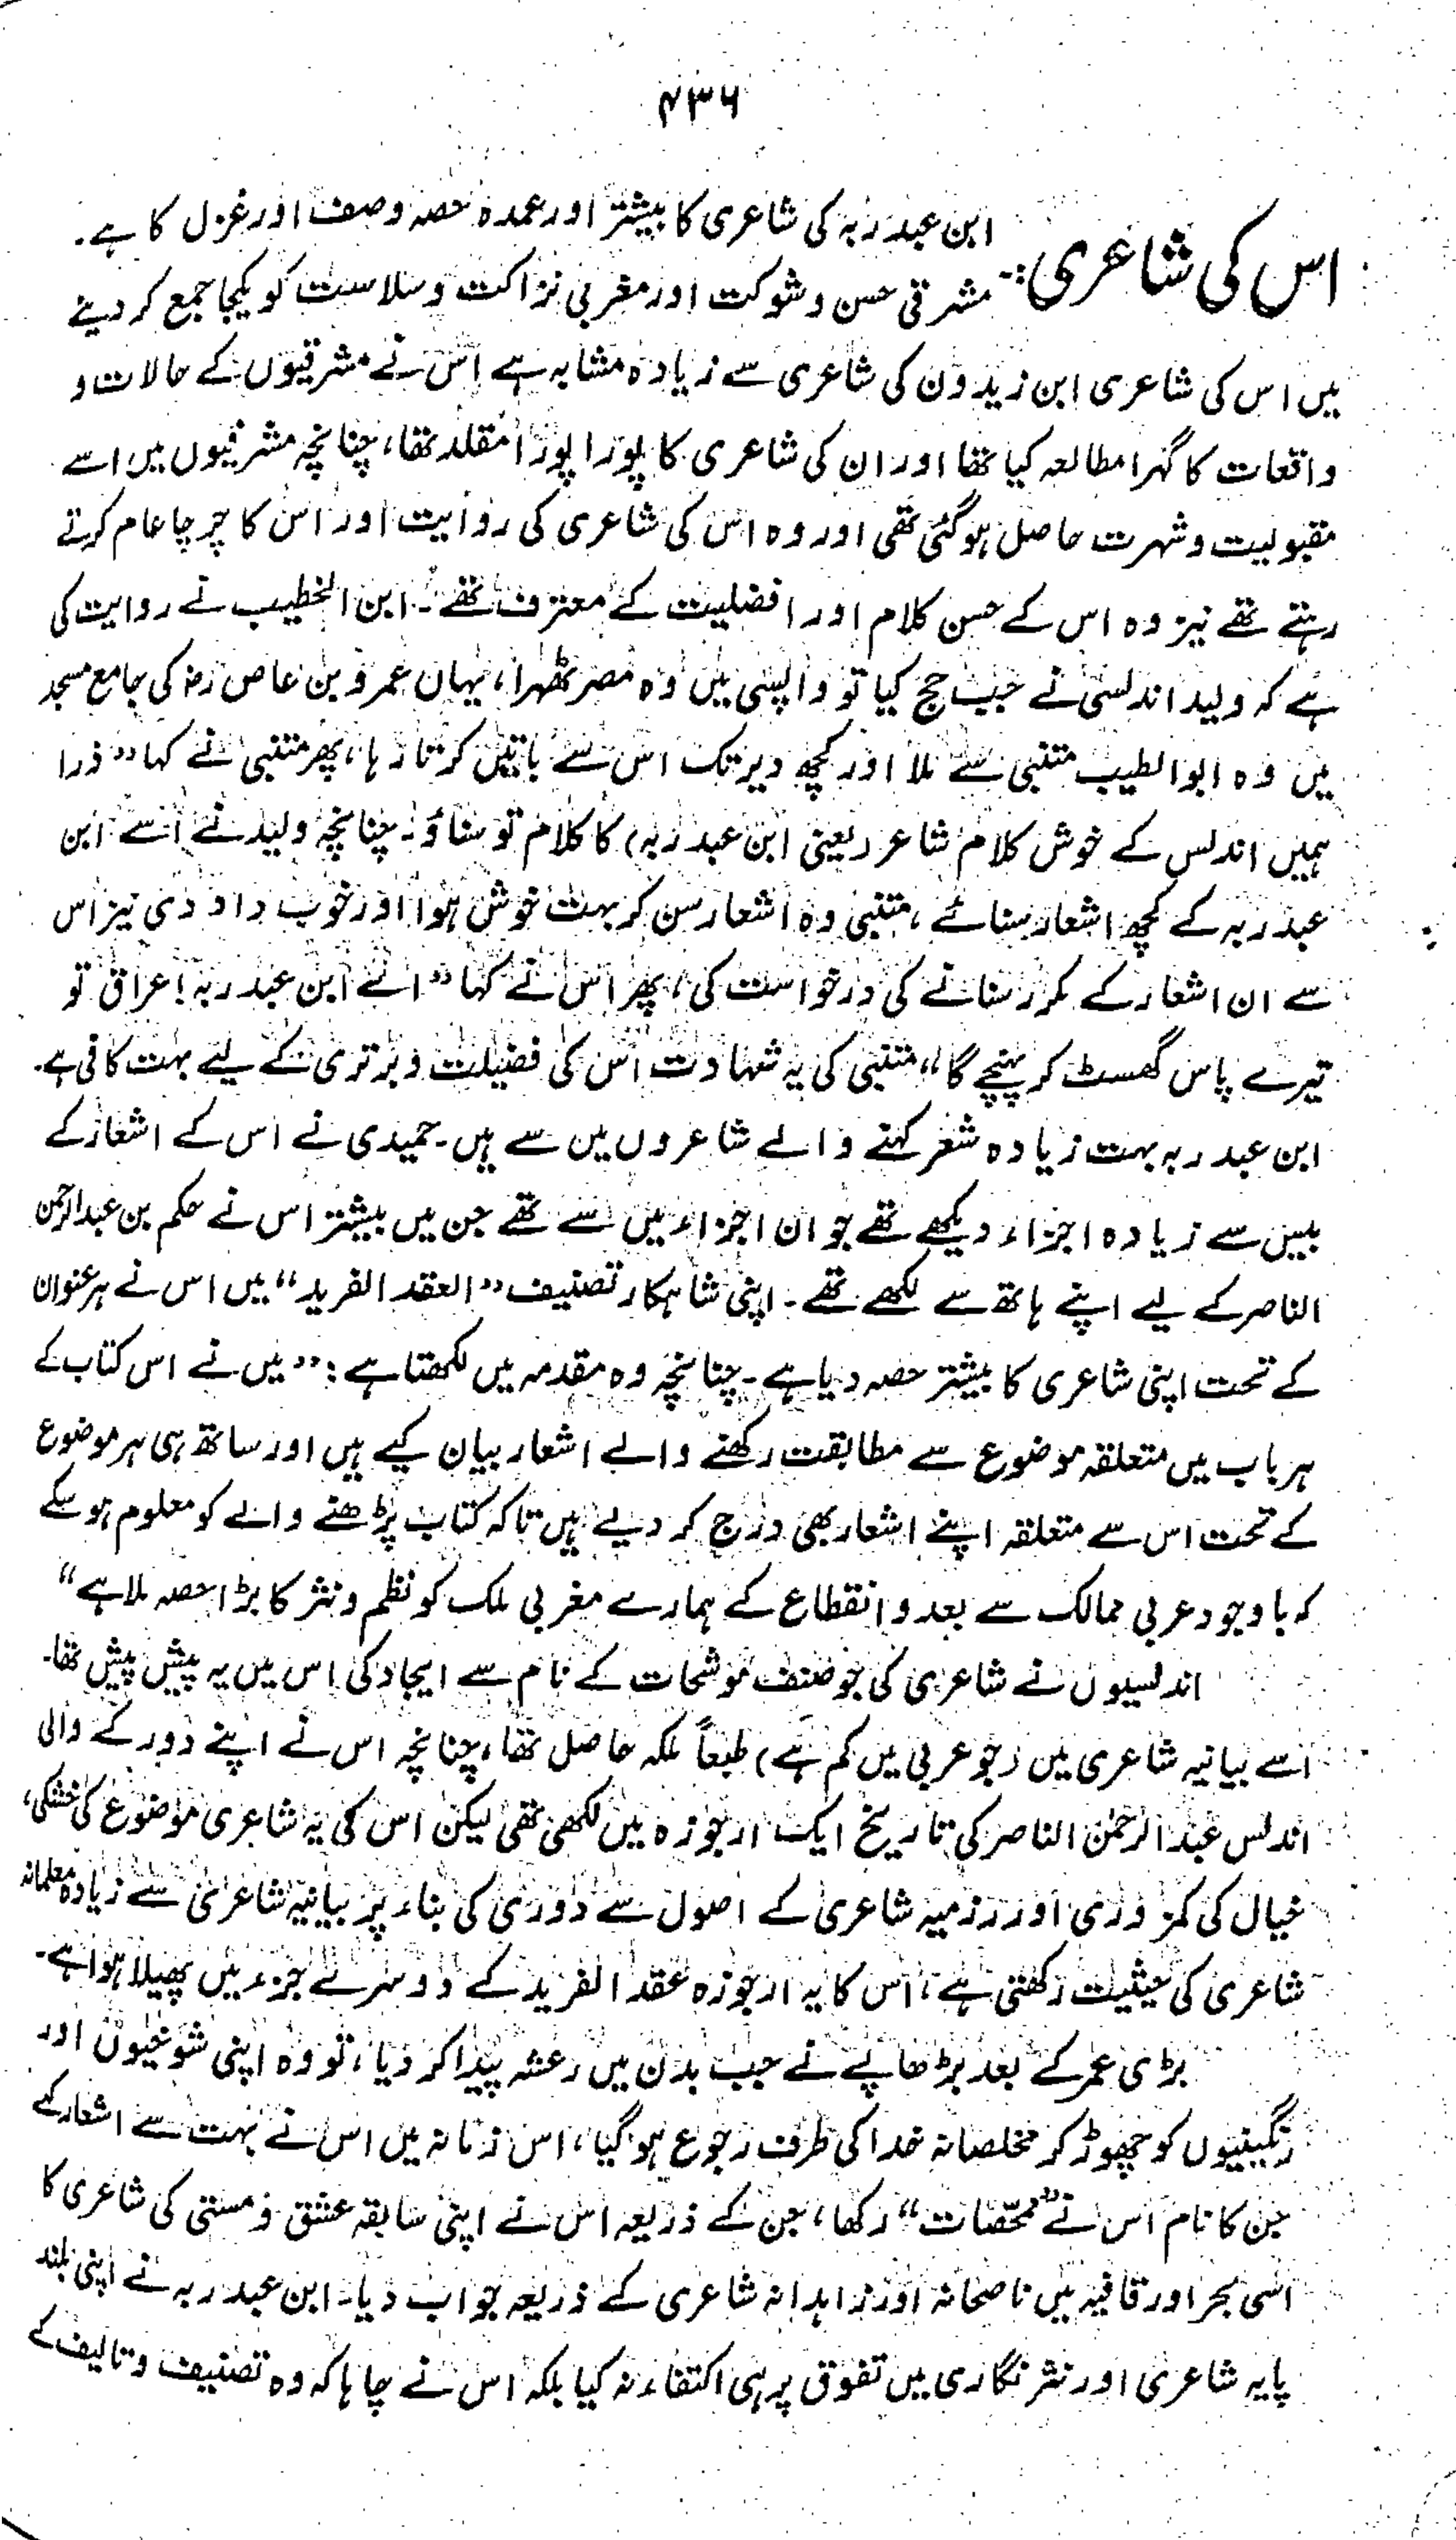 ۴۳۶
اس کی شاعری:۔ ابن عبد ربہ کی شاعری کا بیشتر اور عمدہ حصہ وصف اور غزل کا ہے۔
مشرقی حسن و شوکت اور مغربی نزاکت و سلاست کو یکجا جمع کر دینے
میں اس کی شاعری ابن زیدون کی شاعری سے زیادہ مشابہ ہے اس نے مشرقیوں کے حالات و
واقعات کا گہرا مطالعہ کیا تھا اور ان کی شاعری کا پورا پورا مقلد تھا، چنانچہ مشرقیوں میں اسے
مقبولیت و شہرت حاصل ہو گئی تھی اور وہ اس کی شاعری کی روایت اور اس کا چرچا عام کرتے
رہتے تھے نیز وہ اس کے حسن کلام اور افضلیت کے معترف تھے۔ ابن الخطیب نے روایت کی
ہے کہ ولید اندلسی نے جب حج کیا تو واپسی میں وہ مصر ٹھہرا، یہاں عمرو بن عاص رض کی جامع مسجد
میں وہ ابوالطیب متنبی سے ملا اور کچھ دیر تک اس سے باتیں کرتا رہا، پھر متنبی نے کہا ”ذرا
ہمیں اندلس کے خوش کلام شاعر (یعنی ابن عبد ربہ) کا کلام تو سناؤ۔ چنانچہ ولید نے اسے ابن
عبد ربہ کے کچھ اشعار سنائے، متنبی وہ اشعار سن کر بہت خوش ہوا اور خوب داد دی نیز اس
سے ان اشعار کے مکرر سنانے کی درخواست کی، پھر اس نے کہا ”اے ابن عبد ربہ! عراق تو
تیرے پاس گھسٹ کر پہنچے گا“ متنبی کی یہ شہادت اس کی فضیلت و برتری کے لیے بہت کافی ہے۔
ابن عبد ربہ بہت زیادہ شعر کہنے والے شاعروں میں سے ہیں۔ حمیدی نے اس کے اشعار کے
بیس سے زیادہ اجزاء دیکھے تھے جو ان اجزاء میں سے تھے جن میں بیشتر اس نے حکم بن عبدالرحمن
الناصر کے لیے اپنے ہاتھ سے لکھے تھے۔ اپنی شاہکار تصنیف ”العقد الفرید“ میں اس نے ہر عنوان
کے تحت اپنی شاعری کا بیشتر حصہ دیا ہے۔ چنانچہ وہ مقدمہ میں لکھتا ہے: ”میں نے اس کتاب کے
ہر باب میں متعلقہ موضوع سے مطابقت رکھنے والے اشعار بیان کیے ہیں اور ساتھ ہی ہر موضوع
کے تحت اس سے متعلقہ اپنے اشعار بھی درج کر دیے ہیں تاکہ کتاب پڑھنے والے کو معلوم ہو سکے
کہ باوجود عربی ممالک سے بعد و انقطاع کے ہمارے مغربی ملک کو نظم و نثر کا بڑا حصہ ملا ہے“
اندلسیوں نے شاعری کی جو صنف موشحات کے نام سے ایجاد کی اس میں یہ پیش پیش تھا۔
اسے بیانیہ شاعری میں (جو عربی میں کم ہے) طبعاً ملکہ حاصل تھا، چنانچہ اس نے اپنے دور کے والی
اندلس عبدالرحمٰن الناصر کی تاریخ ایک ارجوزہ میں لکھی تھی لیکن اس کی یہ شاعری موضوع کی خشکی،
خیال کی کمزوری اور رزمیہ شاعری کے اصول سے دوری کی بناء پر بیانیہ شاعری سے زیادہ معلمانہ
شاعری کی حیثیت رکھتی ہے، اس کا یہ ارجوزہ عقد الفرید کے دوسرے جزء میں پھیلا ہوا ہے۔
بڑی عمر کے بعد بڑھاپے نے جب بدن میں رعشہ پیدا کر دیا، تو وہ اپنی شوخیوں اور
رنگینیوں کو چھوڑ کر مخلصانہ خدا کی طرف رجوع ہو گیا، اس زمانہ میں اس نے بہت سے اشعار کہے
جن کا نام اس نے ”ممحّصات“ رکھا، جن کے ذریعہ اس نے اپنی سابقہ عشق و مستی کی شاعری کا
اسی بحر اور قافیہ میں ناصحانہ اور زاہدانہ شاعری کے ذریعہ جواب دیا۔ ابن عبد ربہ نے اپنی بلند
پایہ شاعری اور نثر نگاری میں تفوق پر ہی اکتفاء نہ کیا بلکہ اس نے چاہا کہ وہ تصنیف و تالیف کے